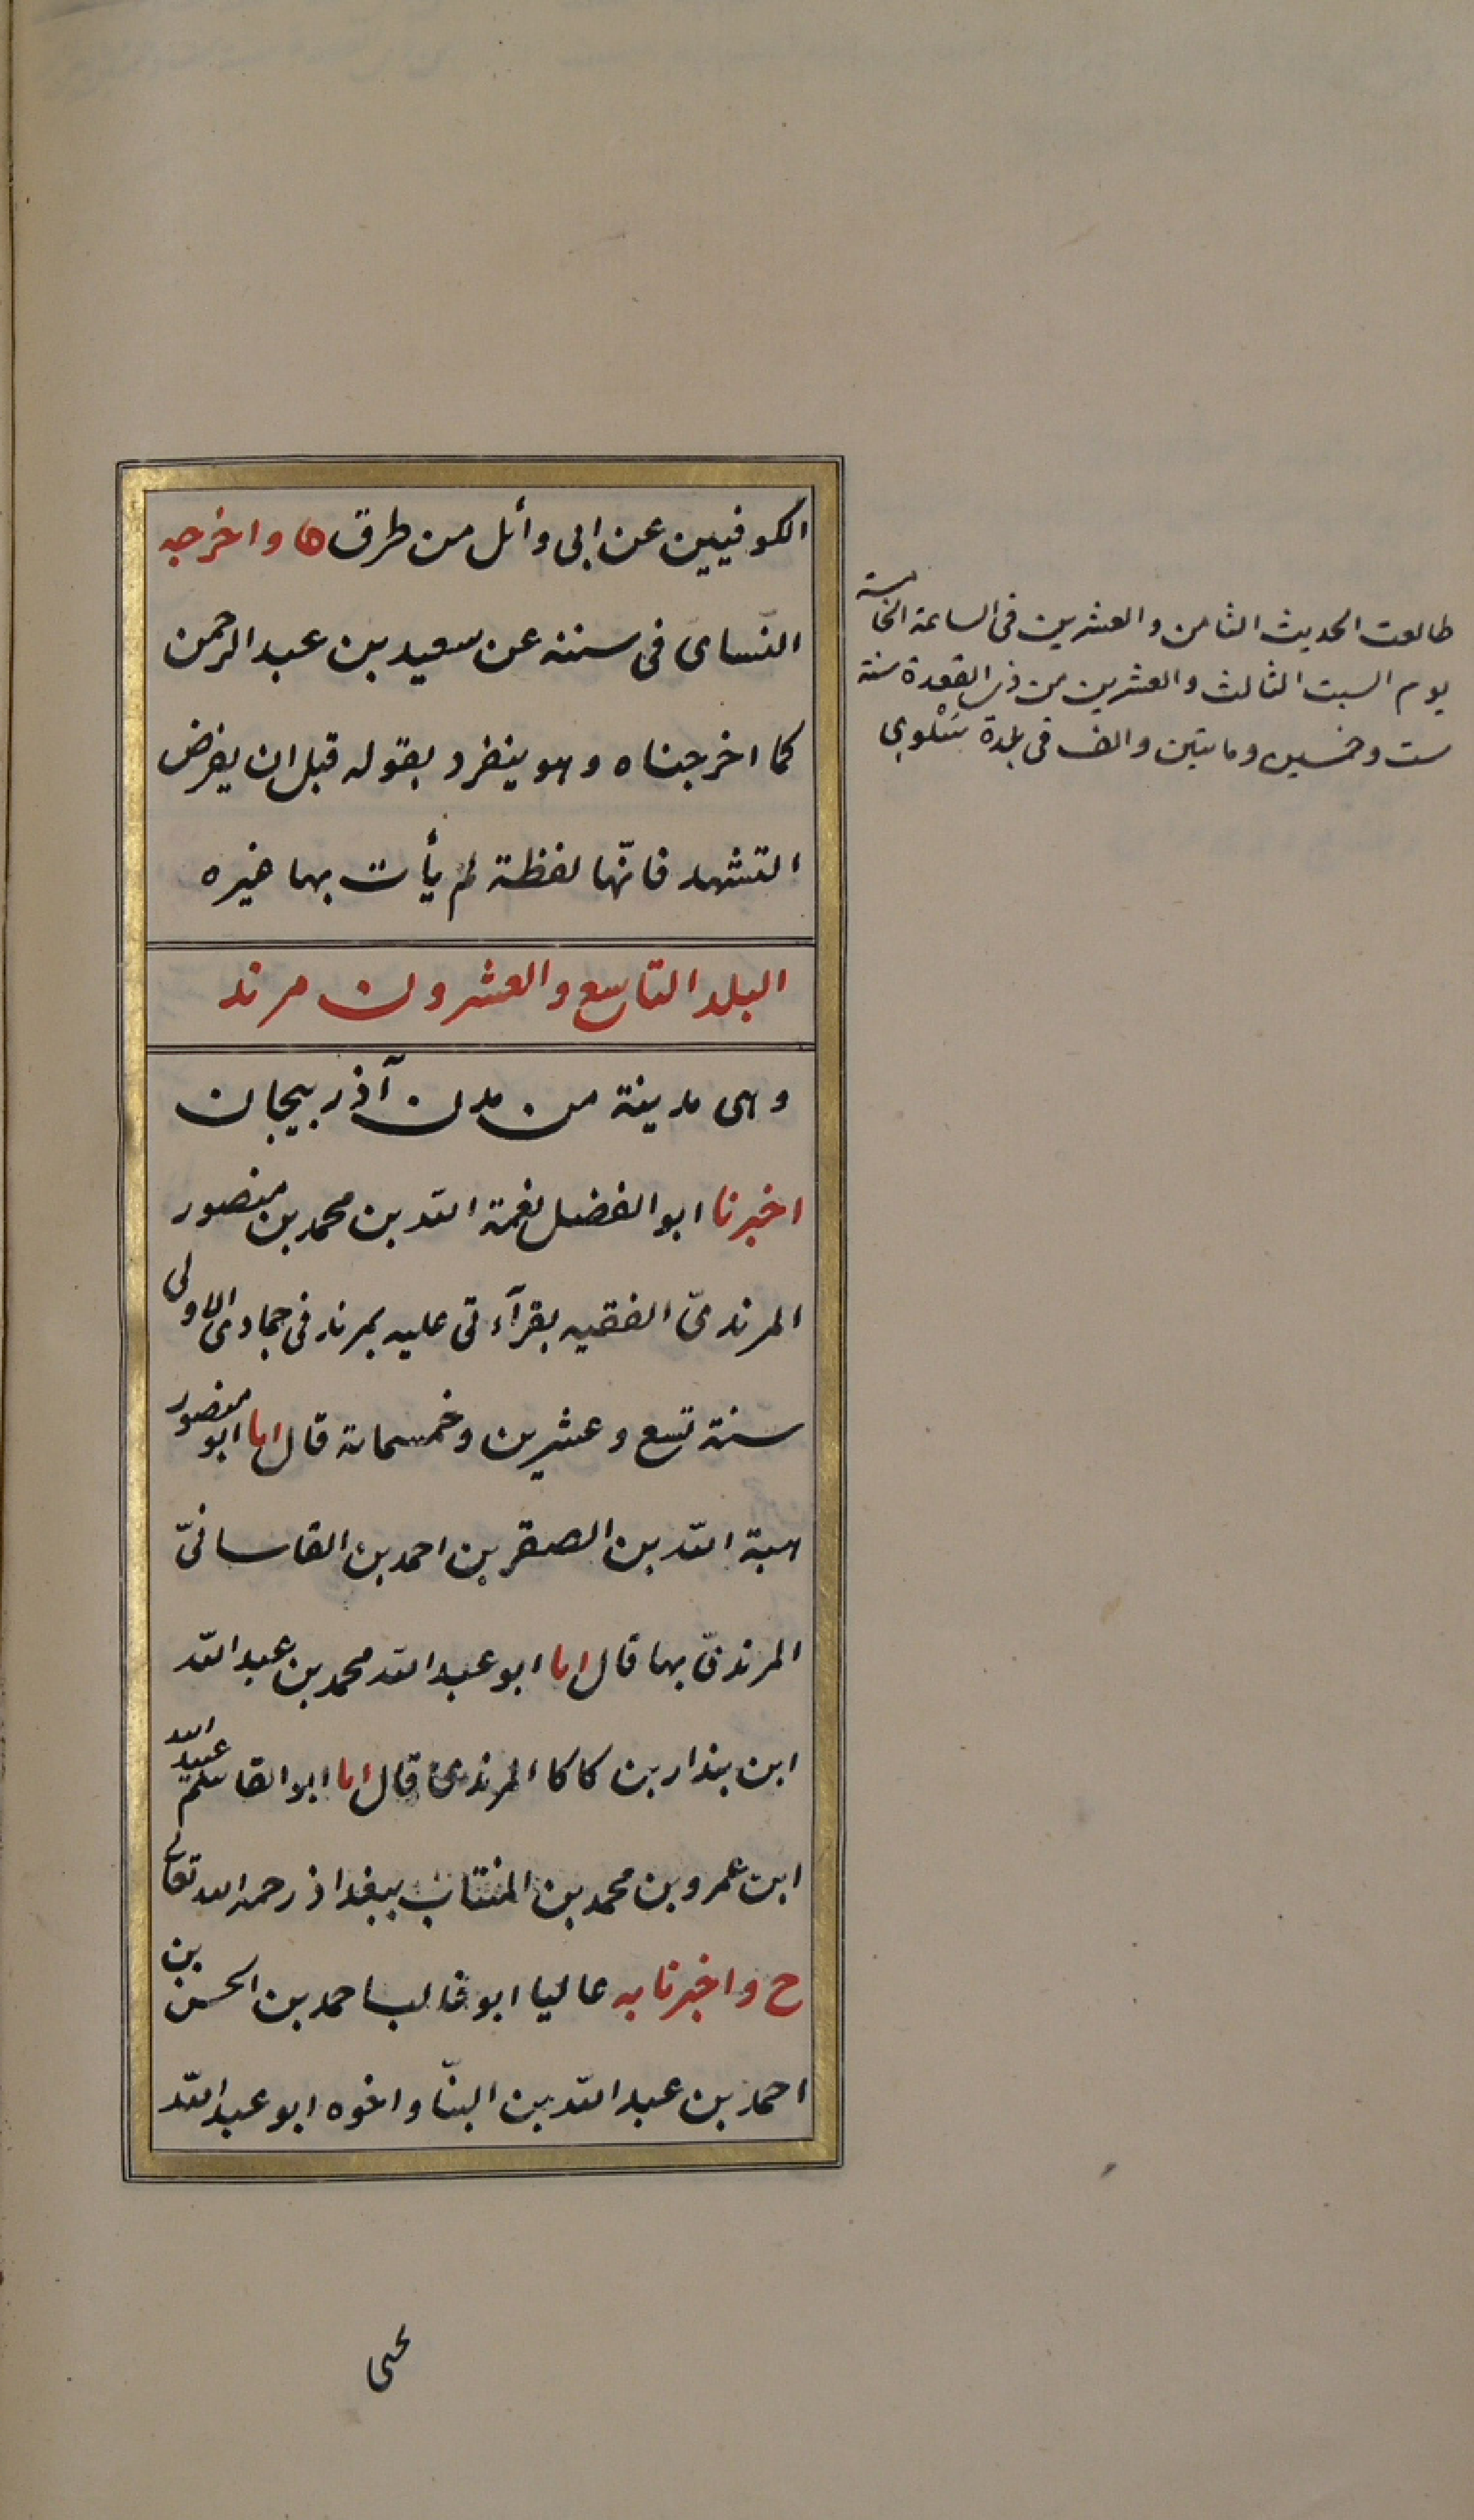 الكوفيين عن ابى وأئل من طرق ه واخرجه
النّساىّ فى سننه عن سعيد بن عبد الرحمن
كما اخرجناه وهو ينفرد بقوله قبل ان يفرض
التشهد فانّها لفظة لم يأت بها غيره
البلد التاسع والعشرون مرند
وهى مدينة من مدن آذربيجان
اخبرنا ابو الفضل نعمة الله بن محمد بن منصور
المرندىّ الفقيه بقرآءتى عليه بمرند فى جمادى الاولى
سنة تسع وعشرين وخمسمائة قال انا ابو منصور
هبة الله بن الصقر بن احمد بن القاسانىّ
المرندىّ بها قال انا ابو عبد الله محمد بن عبد الله
ابن بندار بن كاكا المرندىّ قال انا ابو القاسم عبيد الله
ابن عمرو بن محمد بن المنتاب ببغداذ رحمه الله تعالى
ح واخبرنا به عاليا ابو غالب احمد بن الحسن بن
احمد بن عبد الله بن البنّا واخوه ابو عبد الله
يحيى
طالعت الحديث الثامن والعشرين فى الساعة الخامسة
يوم السبت الثالث والعشرين من ذى القعدة سنة
ست وخمسين ومايتين والف فى بلدة